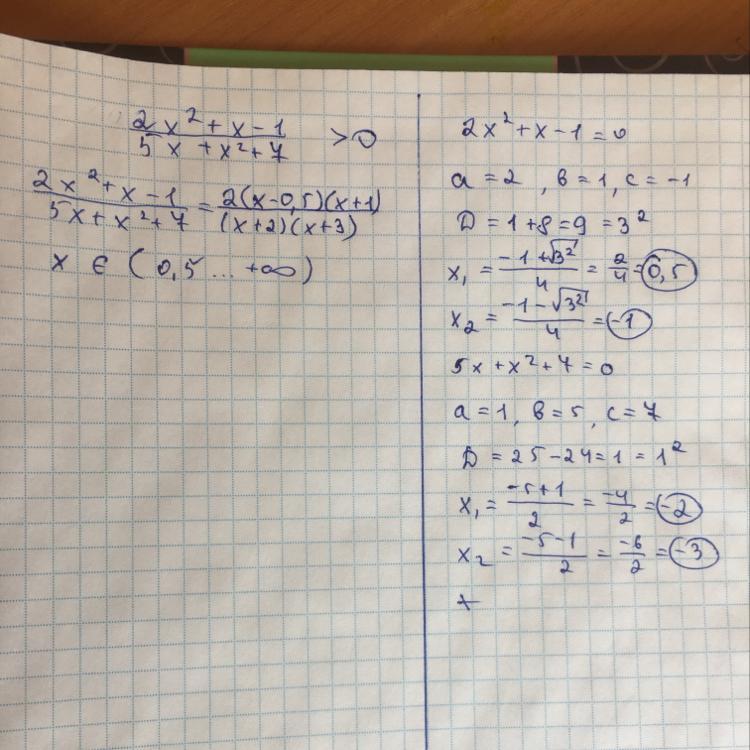 (2x² + x - 1)/(5x + x² + 7) > 0
(2x² + x - 1)/(5x + x² + 7) = 2(x - 0,5)(x + 1)/(x + 2)(x + 3)
x ∈ (0,5 ... +∞)
2x² + x - 1 = 0
a = 2, b = 1, c = -1
D = 1 + 8 = 9 = 3²
x₁ = (-1 + √3²)/4 = 2/4 = 0,5
x₂ = (-1 - √3²)/4 = -1
5x + x² + 7 = 0
a = 1, b = 5, c = 7
D = 25 - 24 = 1 = 1²
x₁ = (-5 + 1)/2 = -4/2 = -2
x₂ = (-5 - 1)/2 = -6/2 = -3
+